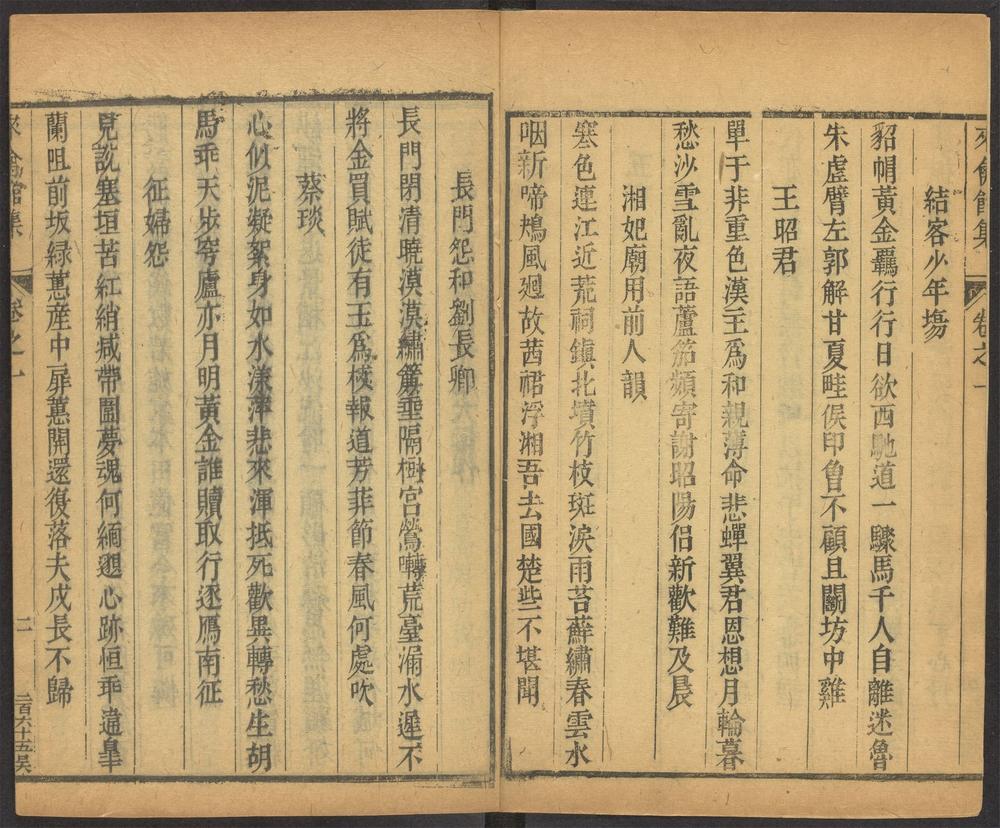 來禽館集 卷之一
結客少年場
貂帽黃金羈行行日欲西馳道一驟馬千人自離迷魯
朱虛臂左郭解甘夏畦侯印曾不顧且鬭坊中雞
王昭君
單于非重色漢主爲和親薄命悲蟬翼君恩想月輪暮
愁沙雪亂夜語蘆笳頻寄謝昭陽侶新歡難及晨
湘妃廟用前人韻
塞色連江近荒祠鎮北墳竹枝斑淚雨苔蘚繡春雲水
咽新啼鴂風廻故茜裙浮湘吾去國楚些不堪聞
長門怨和劉長卿
長門閉清曉漠漠繡簾垂隔樹宮鶯囀荒臺漏水遲不
將金買賦徒有玉爲椟報道芳菲節春風何處吹
蔡琰
心似泥凝絮身如水漾萍悲來渾抵死歡異轉愁生胡
馬乖天步穹廬亦月明黃金誰贖取行逐鴈南征
征婦怨
見說塞垣苦紅綃减帶圍夢魂何緬邈心跡恒乖違皐
蘭咀前坂綠蕙産中扉蕙開還復落夫戍長不歸
來禽館集 卷之一 二 二百六十五吴